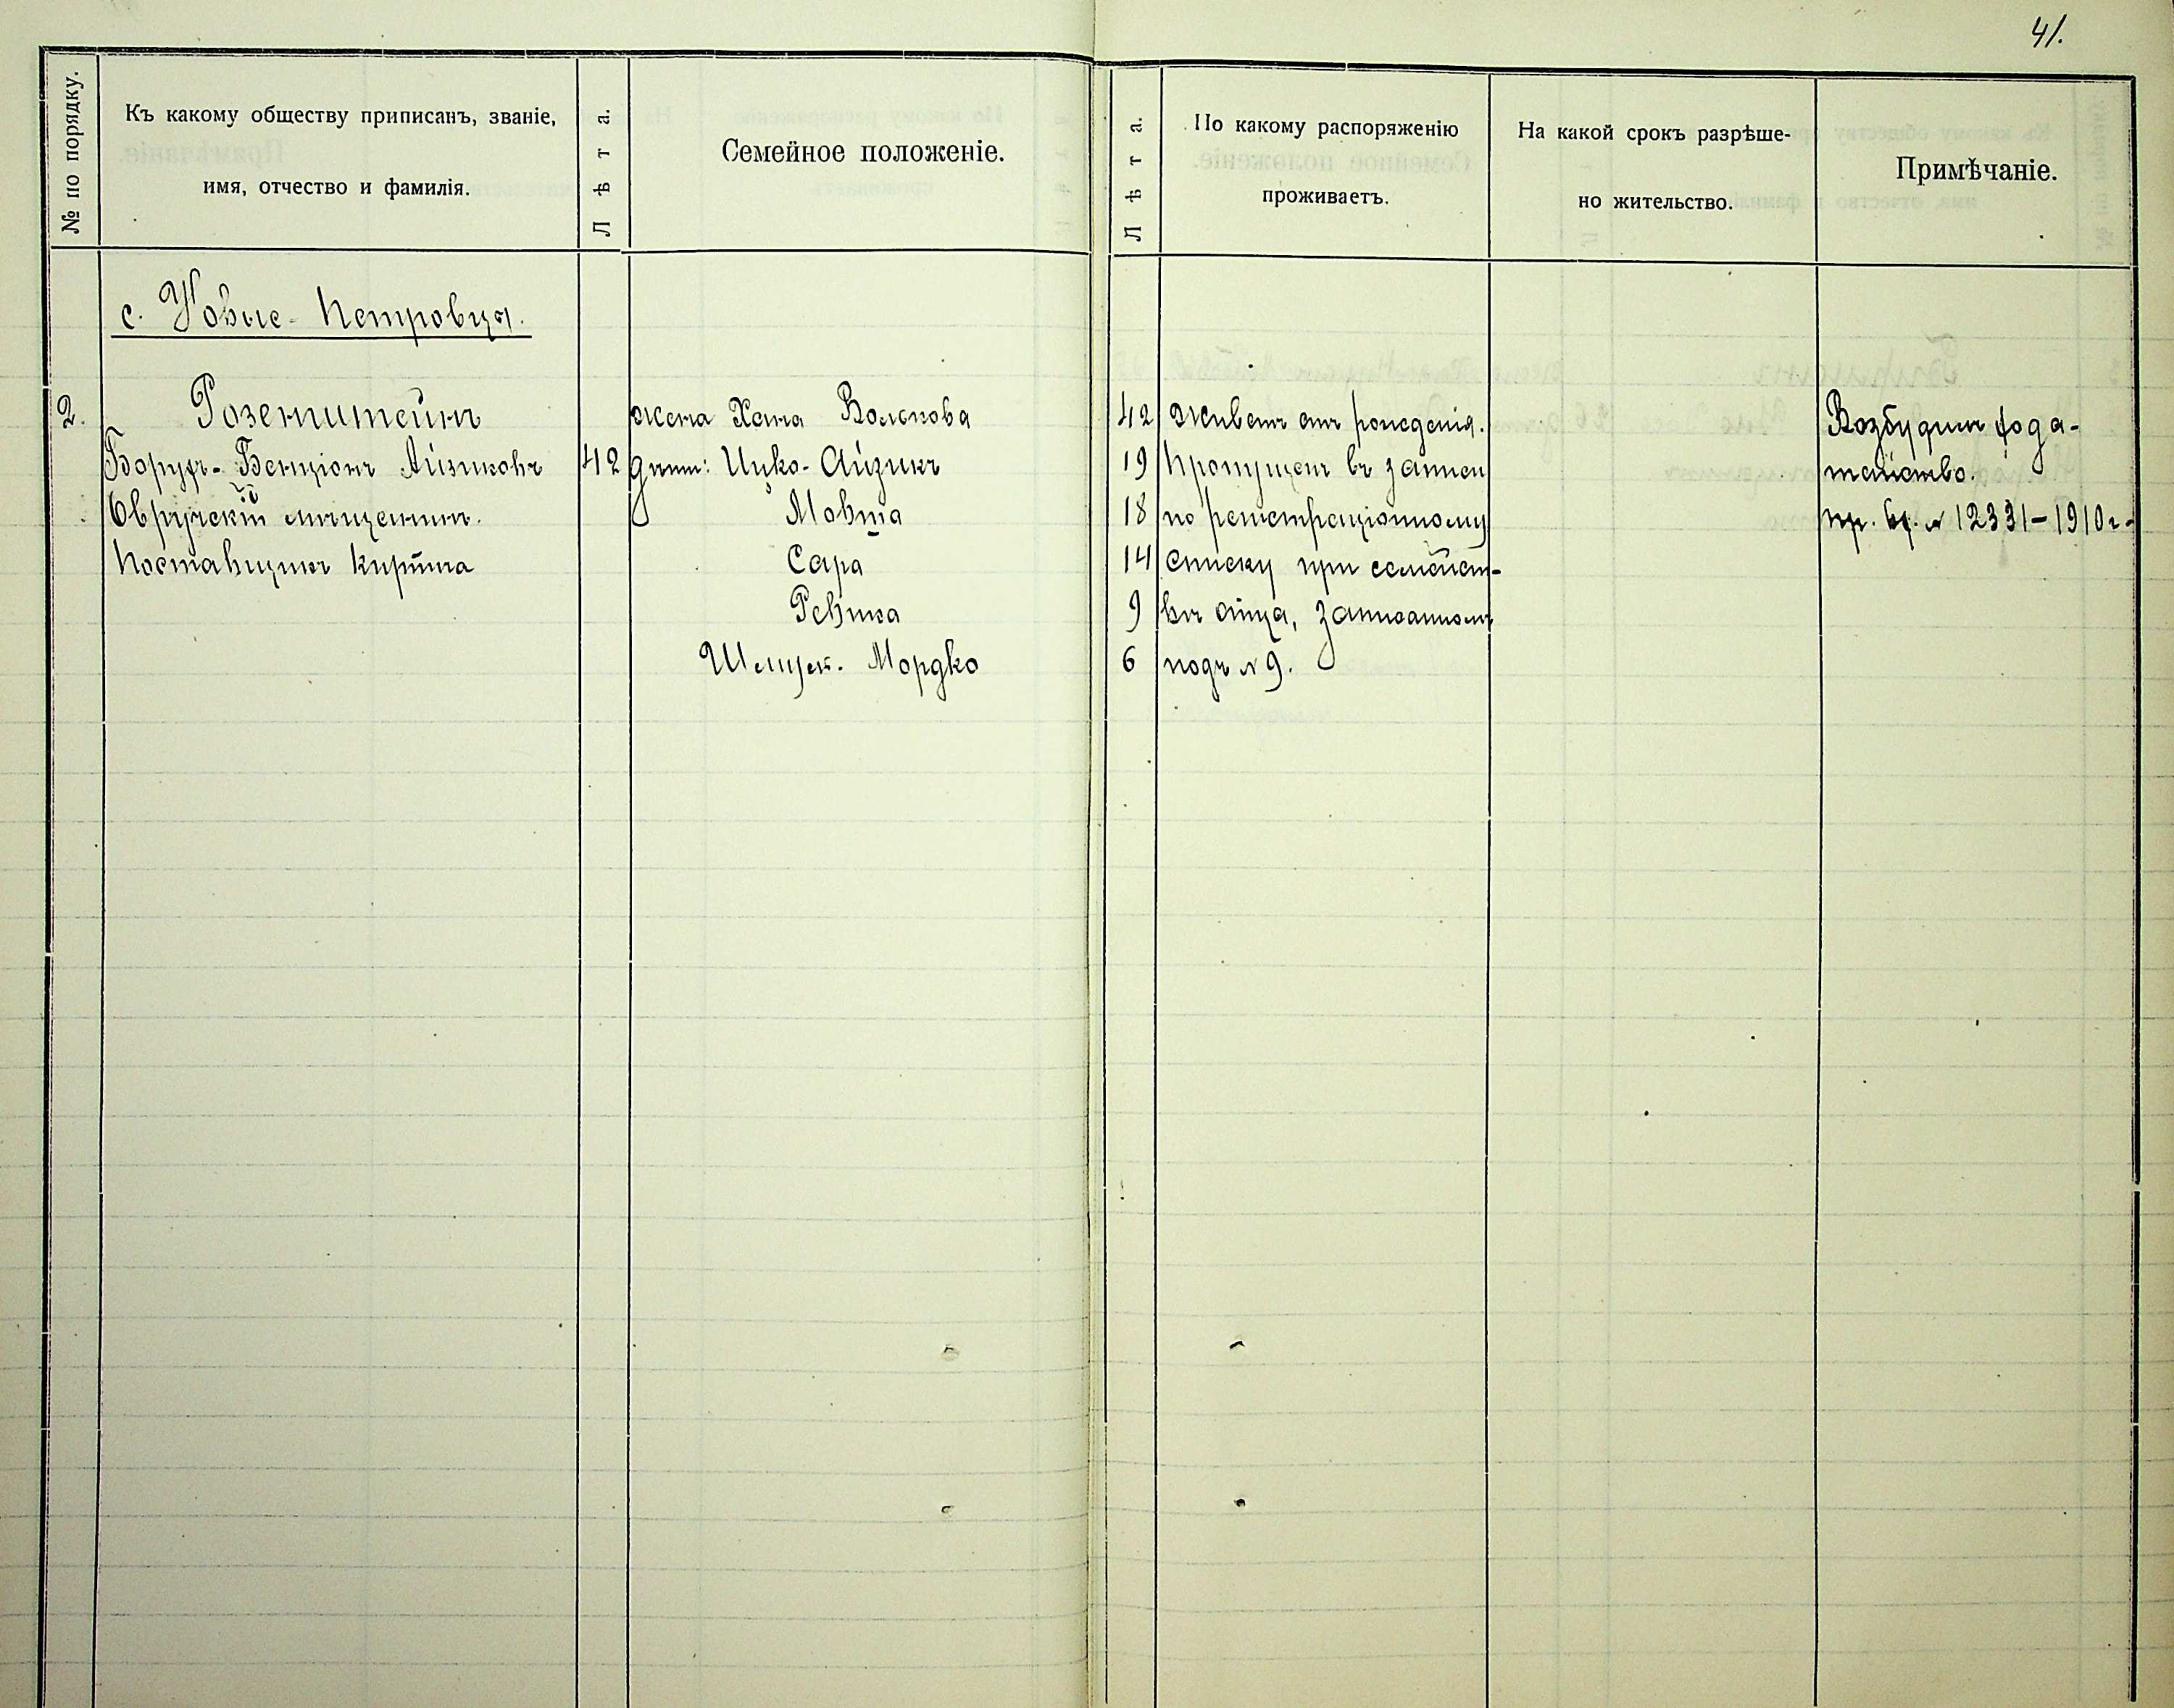 41.
№ по порядку.
Къ какому обществу приписанъ, званіе,
имя, отчество и фамилія.
Лѣта.
Семейное положеніе.
Лѣта.
По какому распоряженію
проживаетъ.
На какой срокъ разрѣше-
но жительство.
Примѣчаніе.
с. Новые-Петровцы.
2.
Розенштейнъ
Борухъ-Бенціонъ Айзиковъ
Овручскій мѣщанинъ.
Поставщикъ кирпича
42
жена Хана Волькова
дѣти: Ицко-Айзикъ
Мовша
Сара
Ревека
Мордко
42
19
18
14
9
6
Живетъ отъ рожденія.
Пропущенъ въ записи
по регистраціонному
списку при семейст-
вѣ отца, записанномъ
подъ № 9.
Возбудилъ хода-
тайство.
вх. № 12331-1910 г.